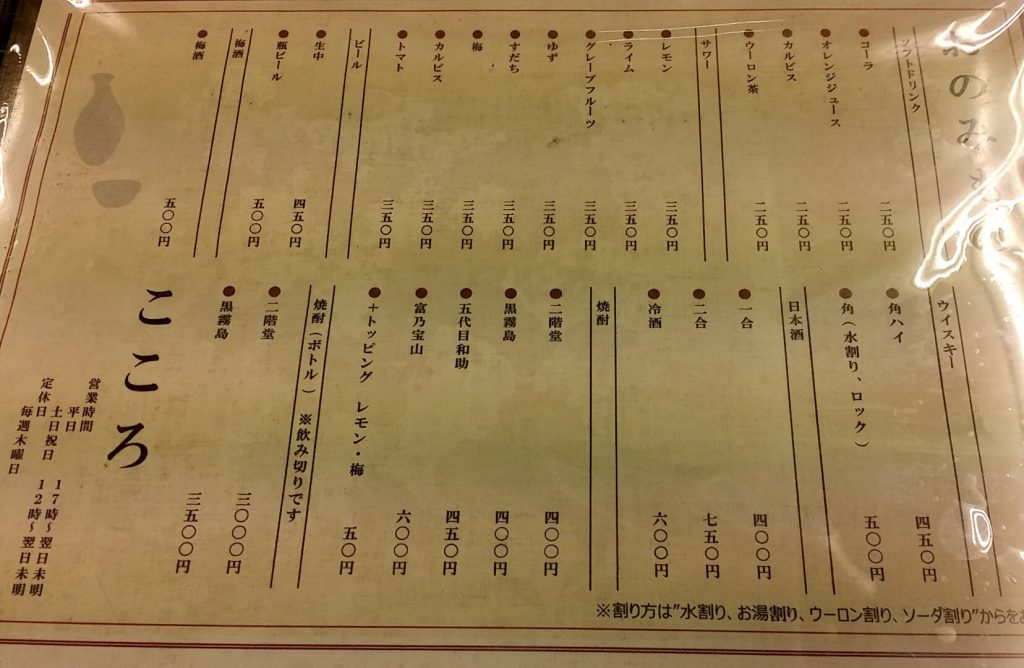 おのみもの
ソフトドリンク
●コーラ 二五〇円
●オレンジジュース 二五〇円
●カルピス 二五〇円
●ウーロン茶 二五〇円
サワー
●レモン 三五〇円
●ライム 三五〇円
●グレープフルーツ 三五〇円
●ゆず 三五〇円
●すだち 三五〇円
●梅 三五〇円
●カルピス 三五〇円
●トマト 三五〇円
ビール
●生中 四五〇円
●瓶ビール 五〇〇円
梅酒
●梅酒 五〇〇円
ウイスキー
●角ハイ 四五〇円
●角(水割り、ロック) 五〇〇円
日本酒
●一合 四〇〇円
●二合 七五〇円
●冷酒 六〇〇円
焼酎
●二階堂 四〇〇円
●黒霧島 四〇〇円
●五代目和助 四五〇円
●富乃宝山 六〇〇円
●+トッピング レモン・梅 五〇円
焼酎(ボトル) ※飲み切りです
●二階堂 三〇〇〇円
●黒霧島 三五〇〇円
こころ
営業時間
平日 17時〜翌日未明
土日祝日 12時〜翌日未明
定休日
毎週木曜日
※割り方は"水割り、お湯割り、ウーロン割り、ソーダ割り"からをお